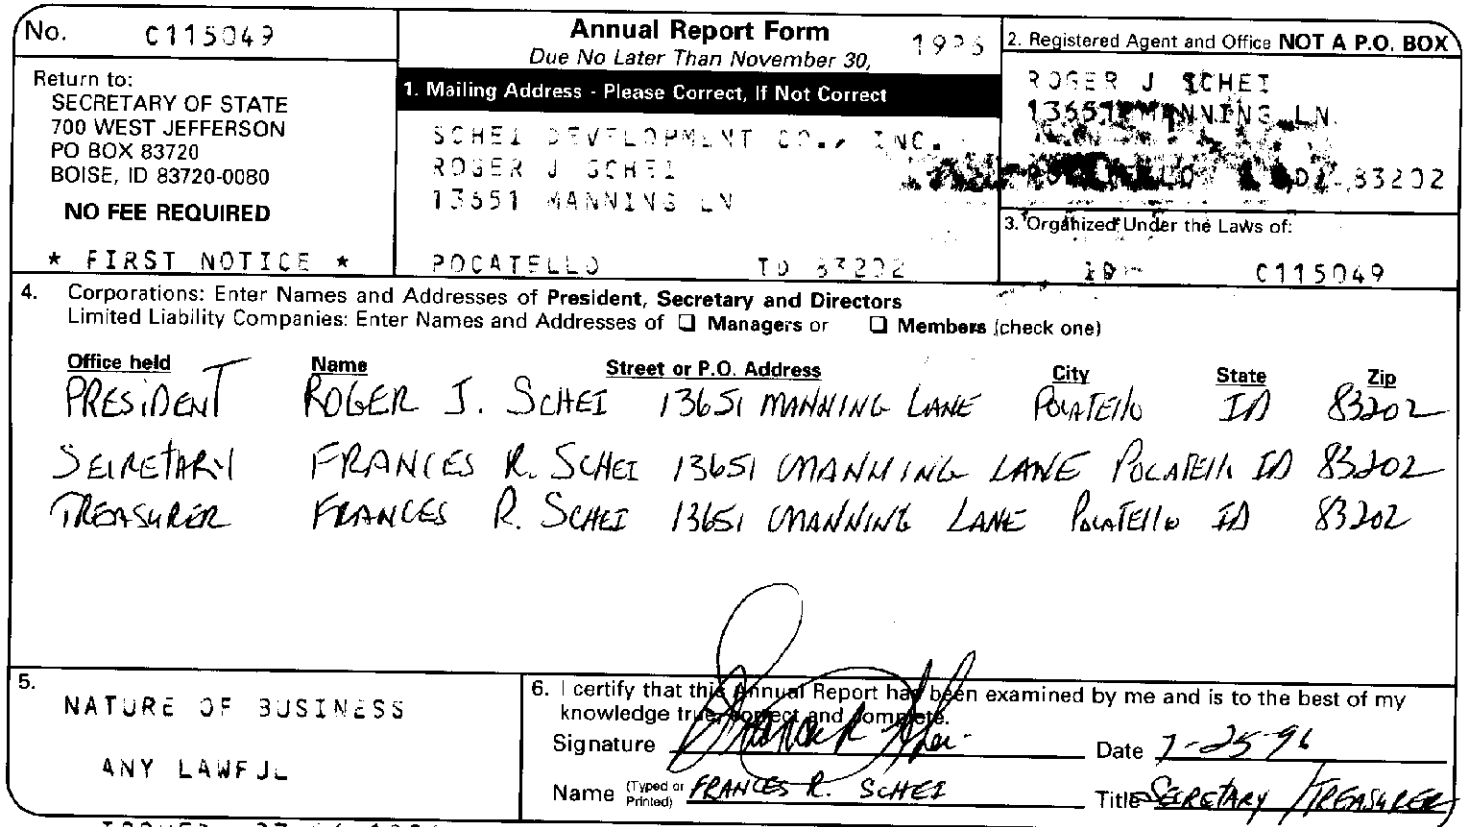 No. C115049
Annual Report Form
Due No Later Than November 30,
2. Registered Agent and Office NOT A P.O. BOX
Return to:
SECRETARY OF STATE
700 WEST JEFFERSON
PO BOX 83720
BOISE, ID 83720-0080
NO FEE REQUIRED
* FIRST NOTICE *
1. Mailing Address - Please Correct, If Not Correct
SCHEI DEVELOPMENT CO., INC.
ROGER J SCHEI
13651 MANNING LN
POCATELLO ID 83202
ROGER J SCHEI
13651 MANNING LN.
83202
3. Organized Under the Laws of:
ID C115049
4. Corporations: Enter Names and Addresses of President, Secretary and Directors
Limited Liability Companies: Enter Names and Addresses of ❑ Managers or ❑ Members (check one)
Office held Name Street or P.O. Address City State Zip
PRESIDENT ROGER J. SCHEI 13651 MANNING LANE POCATELLO ID 83202
SECRETARY FRANCES R. SCHEI 13651 MANNING LANE POCATELLO ID 83202
TREASURER FRANCES R. SCHEI 13651 MANNING LANE POCATELLO ID 83202
5.
NATURE OF BUSINESS
ANY LAWFUL
6. I certify that this Annual Report has been examined by me and is to the best of my
knowledge true, correct and complete.
Signature Date 7-25-96
Name (Typed or Printed) FRANCES R. SCHEI Title SECRETARY/TREASURER